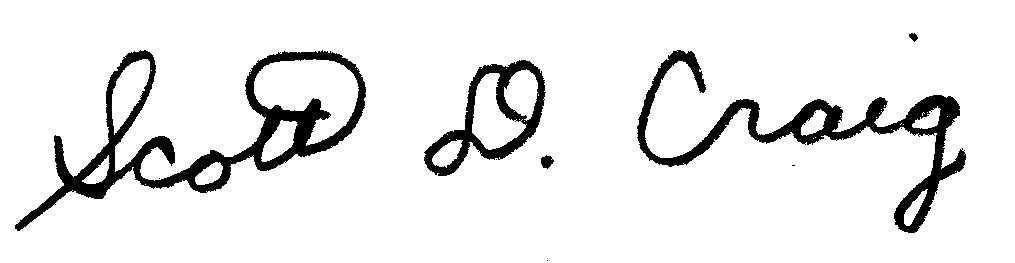 Scott D. Craig